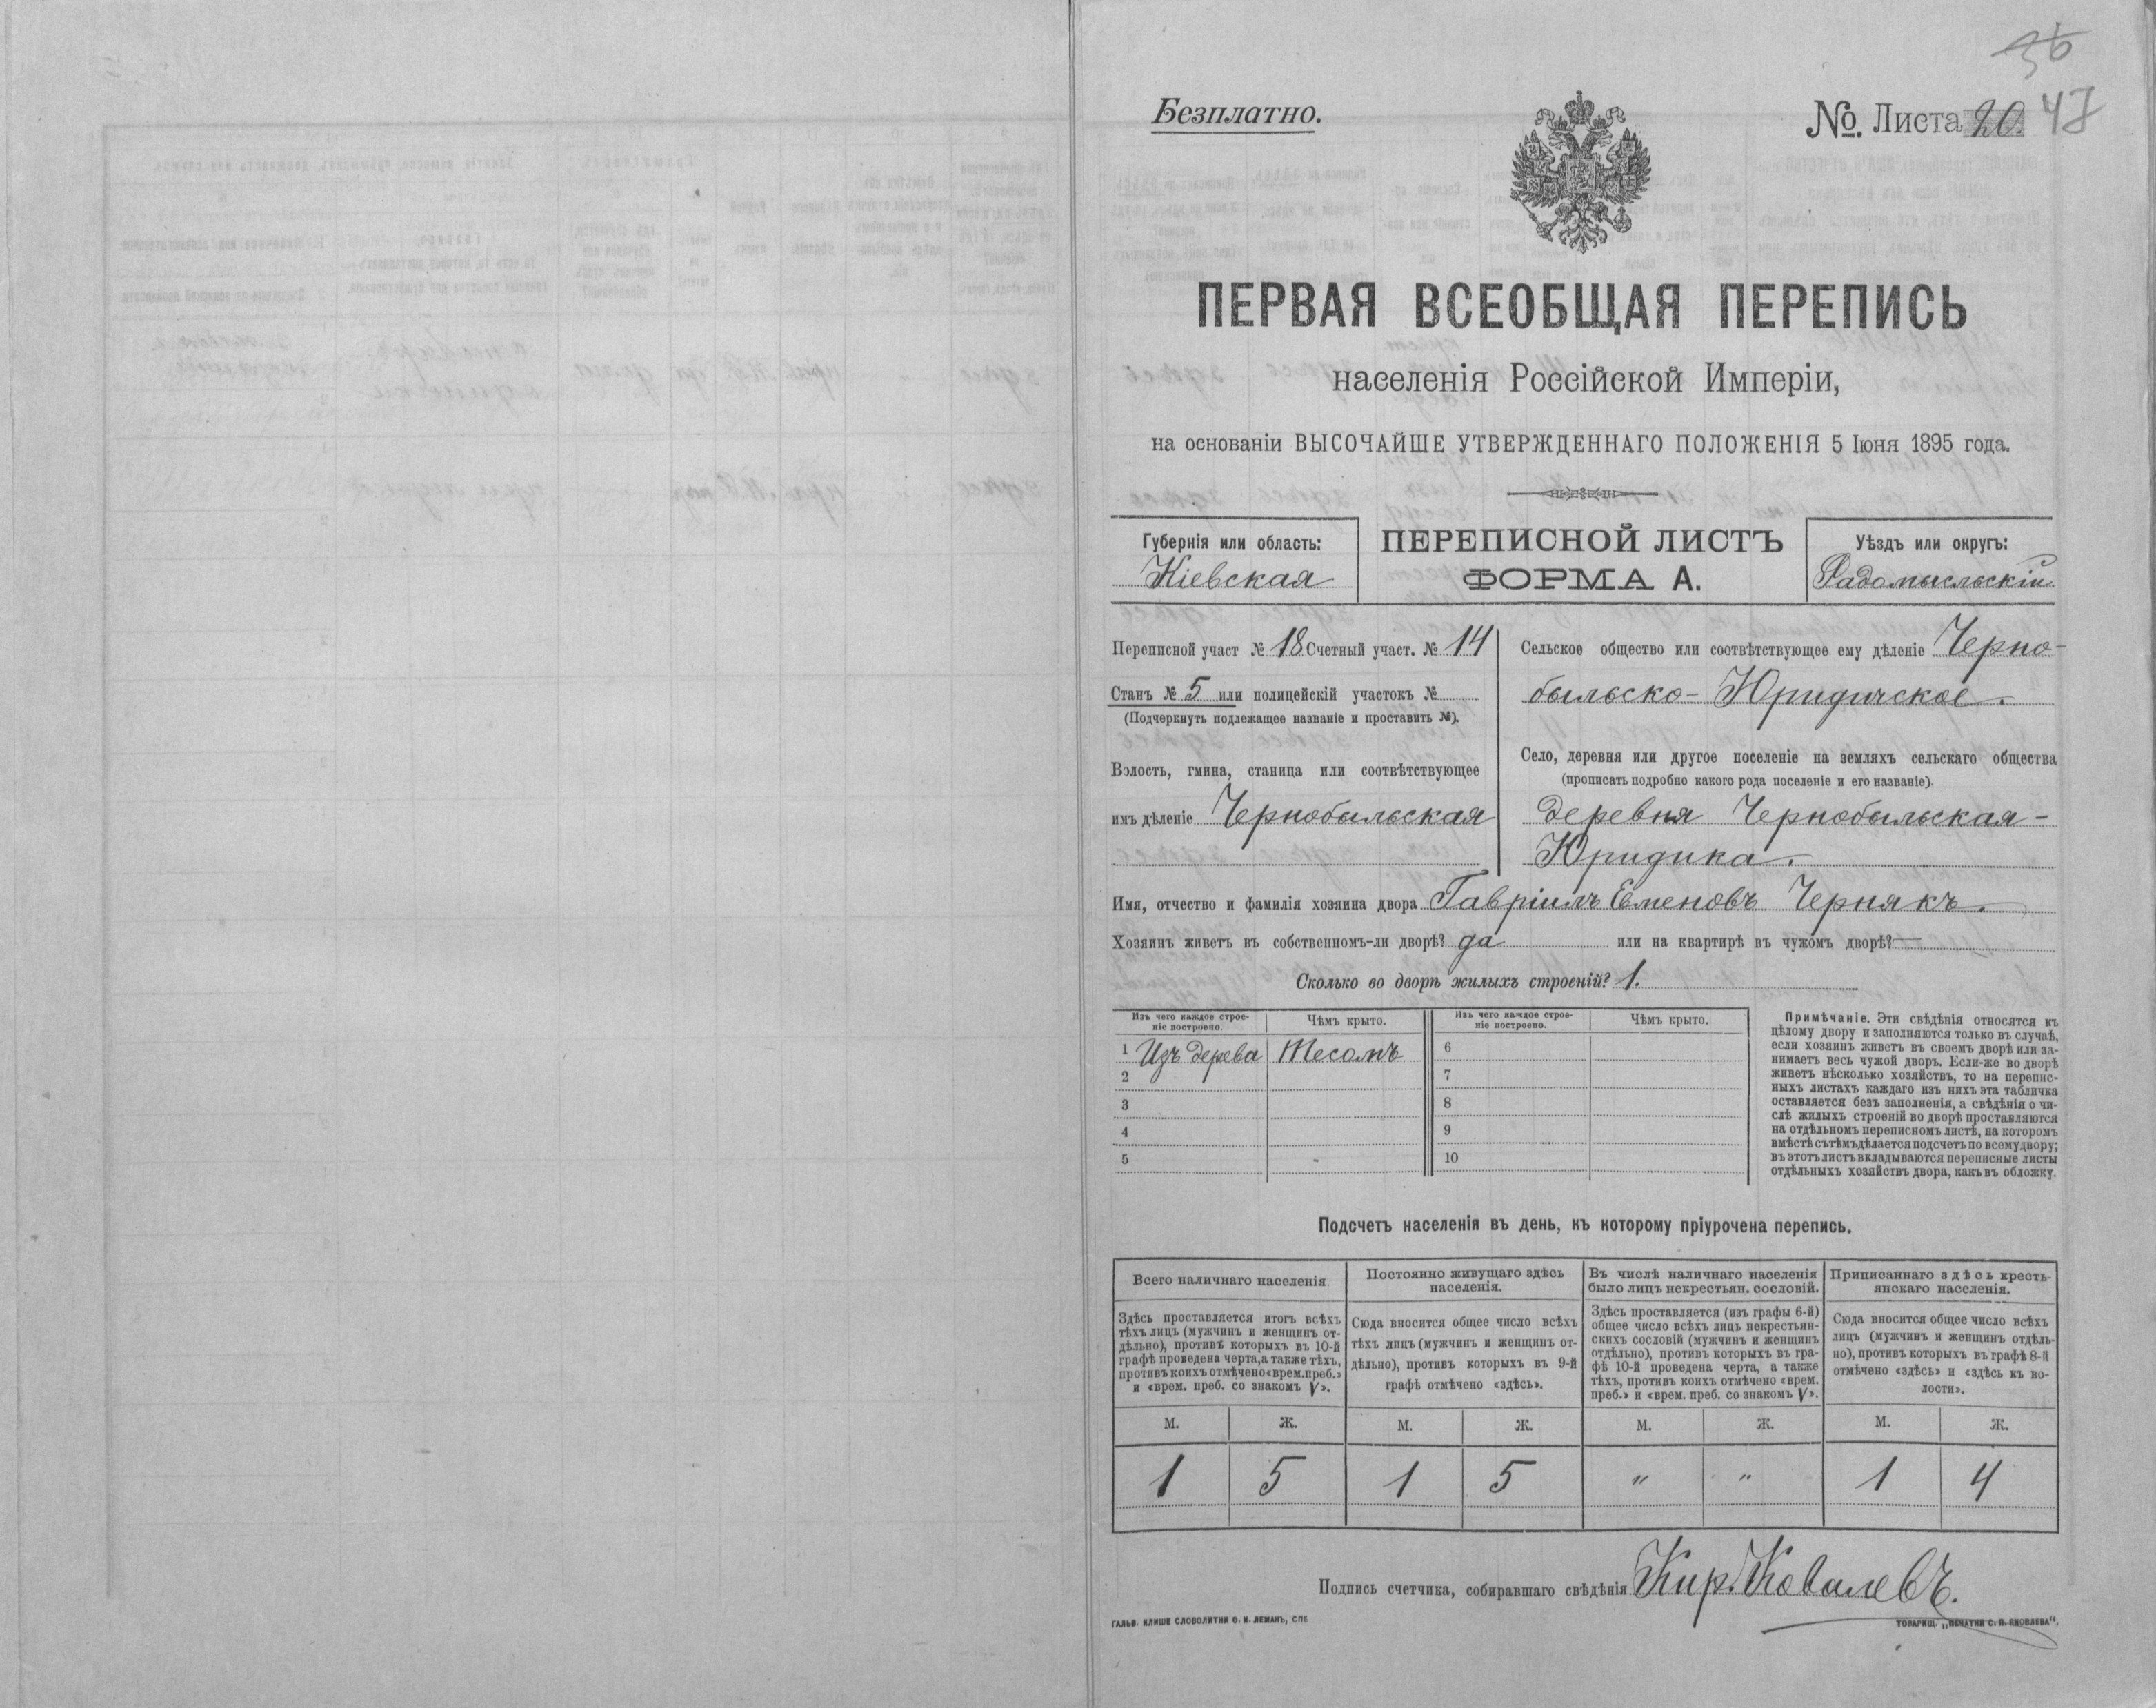 36
Безплатно.
№. Листа 20. 47
ПЕРВАЯ ВСЕОБЩАЯ ПЕРЕПИСЬ
населенія Россійской Имперіи,
на основаніи ВЫСОЧАЙШЕ УТВЕРЖДЕННАГО ПОЛОЖЕНІЯ 5 Іюня 1895 года.
Губернія или область:
Кіевская
ПЕРЕПИСНОЙ ЛИСТЪ
ФОРМА А.
Уѣздъ или округъ:
Радомысльскій
Переписной участ № 18 Счетный участ. № 14
Станъ № 5 или полицейскій участокъ №
(Подчеркнуть подлежащее названіе и проставить №).
Волость, гмина, станица или соотвѣтствующее
имъ дѣленіе Чернобыльская
Сельское общество или соотвѣтствующее ему дѣленіе Черно-
быльско-Юридичское.
Село, деревня или другое поселеніе на земляхъ сельскаго общества
(прописать подробно какого рода поселеніе и его названіе).
деревня Чернобыльская-
Юридика.
Имя, отчество и фамилія хозяина двора Гавріилъ Евменовъ Чернякъ.
Хозяинъ живетъ въ собственномъ-ли дворѣ? да или на квартирѣ въ чужомъ дворѣ? —
Сколько во дворѣ жилыхъ строеній? 1.
Изъ чего каждое строе-
ніе построено.
Чѣмъ крыто.
Изъ чего каждое строе-
ніе построено.
Чѣмъ крыто.
1 Изъ дерева Тесомъ
2
3
4
5
6
7
8
9
10
Примѣчаніе. Эти свѣдѣнія относятся къ
цѣлому двору и заполняются только въ случаѣ,
если хозяинъ живетъ въ своемъ дворѣ или за-
нимаетъ весь чужой дворъ. Если-же во дворѣ
живетъ нѣсколько хозяйствъ, то на перепис-
ныхъ листахъ каждаго изъ нихъ эта табличка
оставляется безъ заполненія, а свѣдѣнія о чи-
слѣ жилыхъ строеній во дворѣ проставляются
на отдѣльномъ переписномъ листѣ, на которомъ
вмѣстѣ съ тѣмъ дѣлается подсчетъ по всему двору;
въ этотъ листъ вкладываются переписные листы
отдѣльныхъ хозяйствъ двора, какъ въ обложку.
Подсчетъ населенія въ день, къ которому пріурочена перепись.
Всего наличнаго населенія.
Здѣсь проставляется итогъ всѣхъ
тѣхъ лицъ (мужчинъ и женщинъ от-
дѣльно), противъ которыхъ въ 10-й
графѣ проведена черта, а также тѣхъ,
противъ коихъ отмѣчено «врем. преб.»
и «врем. преб. со знакомъ V».
Постоянно живущаго здѣсь
населенія.
Сюда вносится общее число всѣхъ
тѣхъ лицъ (мужчинъ и женщинъ от-
дѣльно), противъ которыхъ въ 9-й
графѣ отмѣчено «здѣсь».
Въ числѣ наличнаго населенія
было лицъ некрестьян. сословій.
Здѣсь проставляется (изъ графы 6-й)
общее число всѣхъ лицъ некрестьян-
скихъ сословій (мужчинъ и женщинъ
отдѣльно), противъ которыхъ въ гра-
фѣ 10-й проведена черта, а также
тѣхъ, противъ коихъ отмѣчено «врем.
преб.» и «врем. преб. со знакомъ V».
Приписаннаго здѣсь кресть-
янскаго населенія.
Сюда вносится общее число всѣхъ
лицъ (мужчинъ и женщинъ отдѣль-
но), противъ которыхъ въ графѣ 8-й
отмѣчено «здѣсь» и «здѣсь къ во-
лости».
М. Ж. М. Ж. М. Ж. М. Ж.
1 5 1 5 " " 1 4
Подпись счетчика, собиравшаго свѣдѣнія Кир. Ковалевъ.
ГАЛЬВ. КЛИШЕ СЛОВОЛИТНИ О. И. ЛЕМАНЪ, СПБ
ТОВАРИЩ. „ПЕЧАТНЯ С. П. ЯКОВЛЕВА".